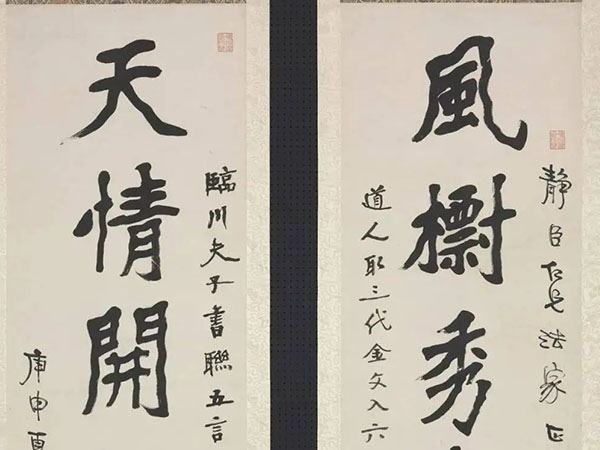 靜臣仁兄法家正
風檦秀
道人取三代金文入六
臨川夫子書聯五言
天情開
庚申